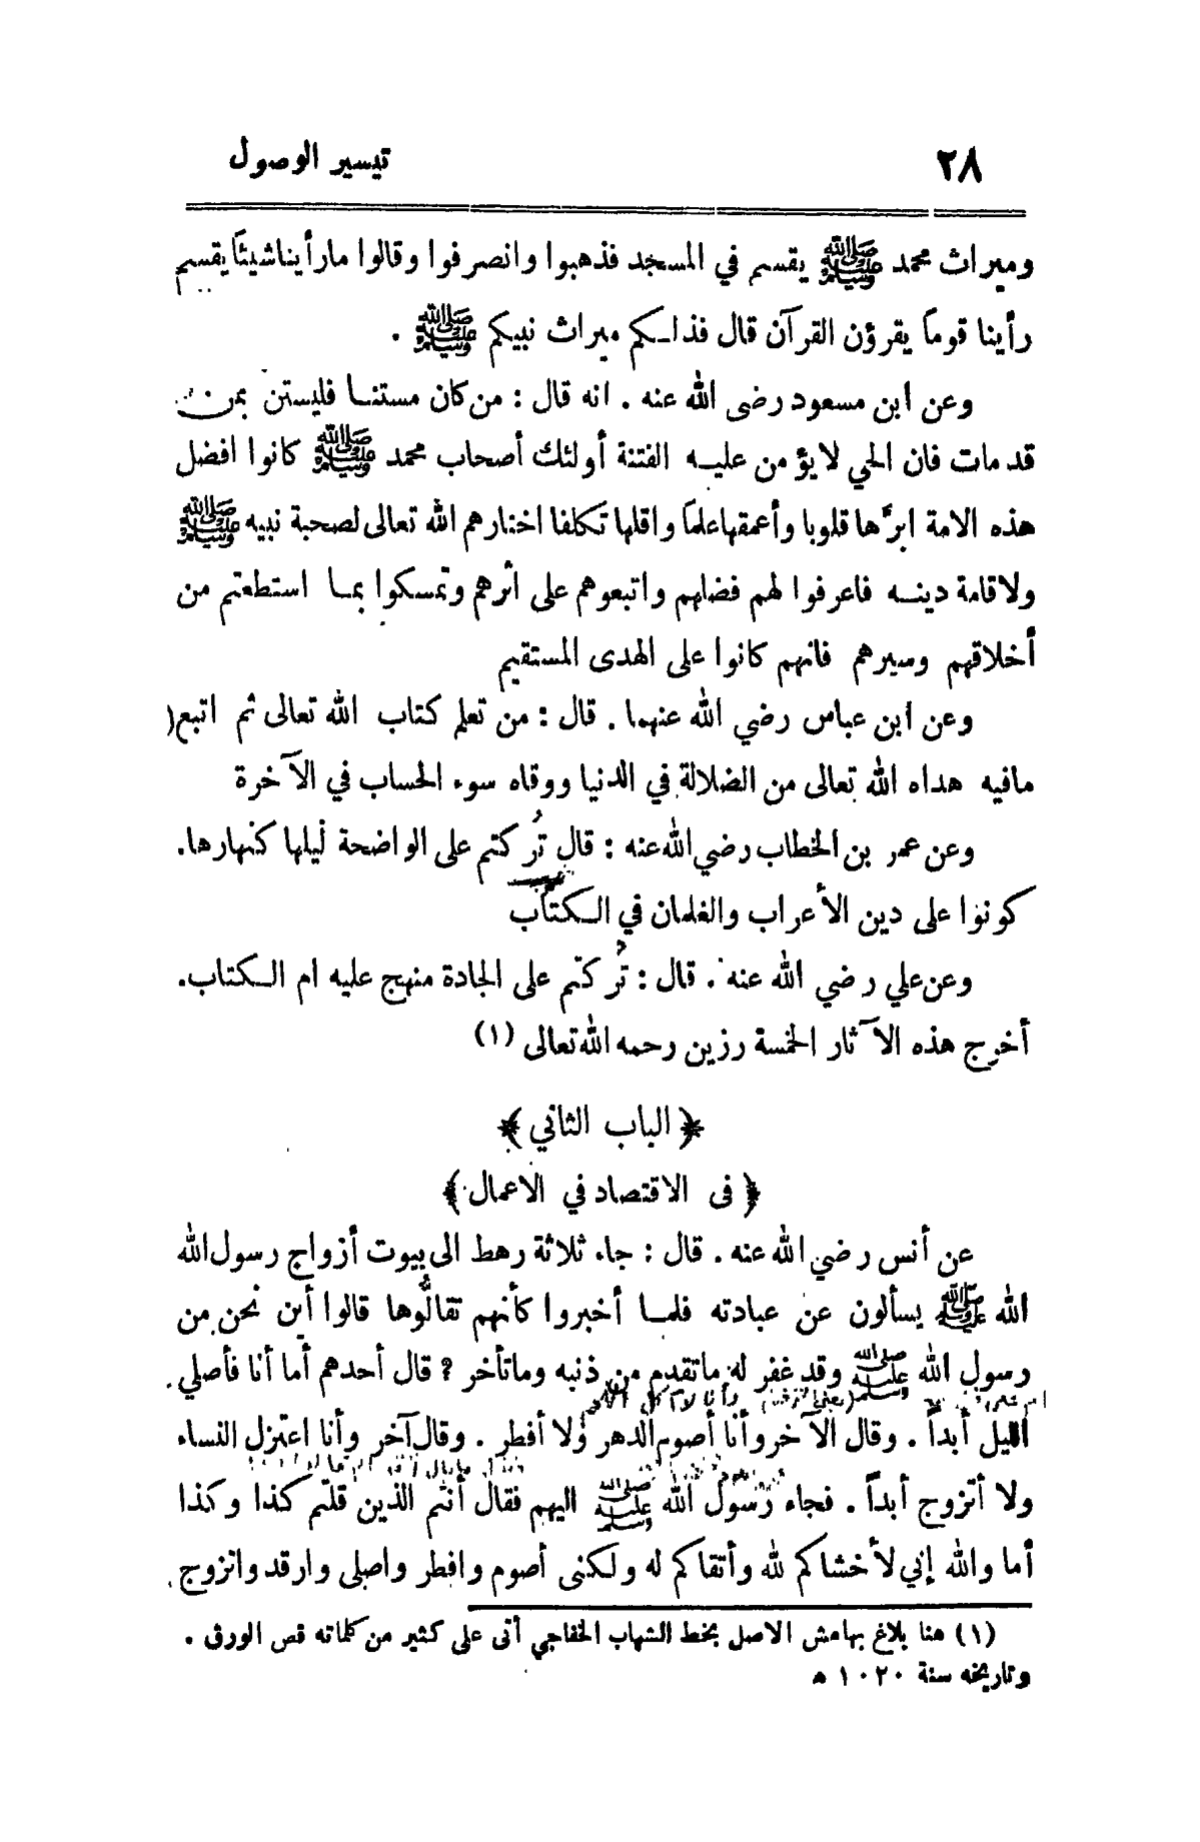 ٢٨ تيسير الوصول
وميراث محمد ﷺ يقسم في المسجد فذهبوا وانصرفوا وقالوا مارأيناشيئاً يقسم
رأينا قوماً يقرؤن القرآن قال فذالكم ميراث نبيكم ﷺ .
وعن ابن مسعود رضى الله عنه . انه قال : من كان مستنا فليستن بمن
قد مات فان الحي لايؤمن عليه الفتنة أولئك أصحاب محمد ﷺ كانوا افضل
هذه الامة ابرَّها قلوبا وأعمقهاعلماً واقلها تكلفا اختارهم الله تعالى لصحبة نبيه ﷺ
ولاقامة دينه فاعرفوا لهم فضلهم واتبعوهم على اثرهم وتمسكوا بما استطعتم من
أخلاقهم وسيرهم فانهم كانوا على الهدى المستقيم
وعن ابن عباس رضي الله عنهما . قال : من تعلم كتاب الله تعالى ثم اتبع
مافيه هداه الله تعالى من الضلالة في الدنيا ووقاه سوء الحساب في الآخرة
وعن عمر بن الخطاب رضي الله عنه : قال تُركتم على الواضحة ليلها كنهارها.
كونوا على دين الأعراب والغلمان في الكتَّاب
وعن علي رضي الله عنه . قال : تُركتم على الجادة منهج عليه ام الكتاب.
أخرج هذه الآثار الخمسة رزين رحمه الله تعالى (١)
﴿ الباب الثاني ﴾
﴿ فى الاقتصاد في الاعمال ﴾
عن أنس رضي الله عنه . قال : جاء ثلاثة رهط الى بيوت أزواج رسول الله
الله ﷺ يسألون عن عبادته فلما أخبروا كأنهم تقالُّوها قالوا أين نحن من
رسول الله ﷺ وقد غفر له ماتقدم من ذنبه وماتأخر ؟ قال أحدهم أما أنا فأصلي
الليل أبداً . وقال الآخر وأنا أصوم الدهر ولا أفطر . وقال آخر وأنا اعتزل النساء
ولا أتزوج أبداً . فجاء رسول الله ﷺ اليهم فقال أنتم الذين قلتم كذا وكذا
أما والله إني لأخشاكم لله وأتقاكم له ولكنى أصوم وافطر واصلى وارقد واتزوج
(١) هنا بلاغ بهامش الاصل بخط الشهاب الخفاجي أتى على كثير من كلماته قص الورق .
وتاريخه سنة ١٠٢٠ ه